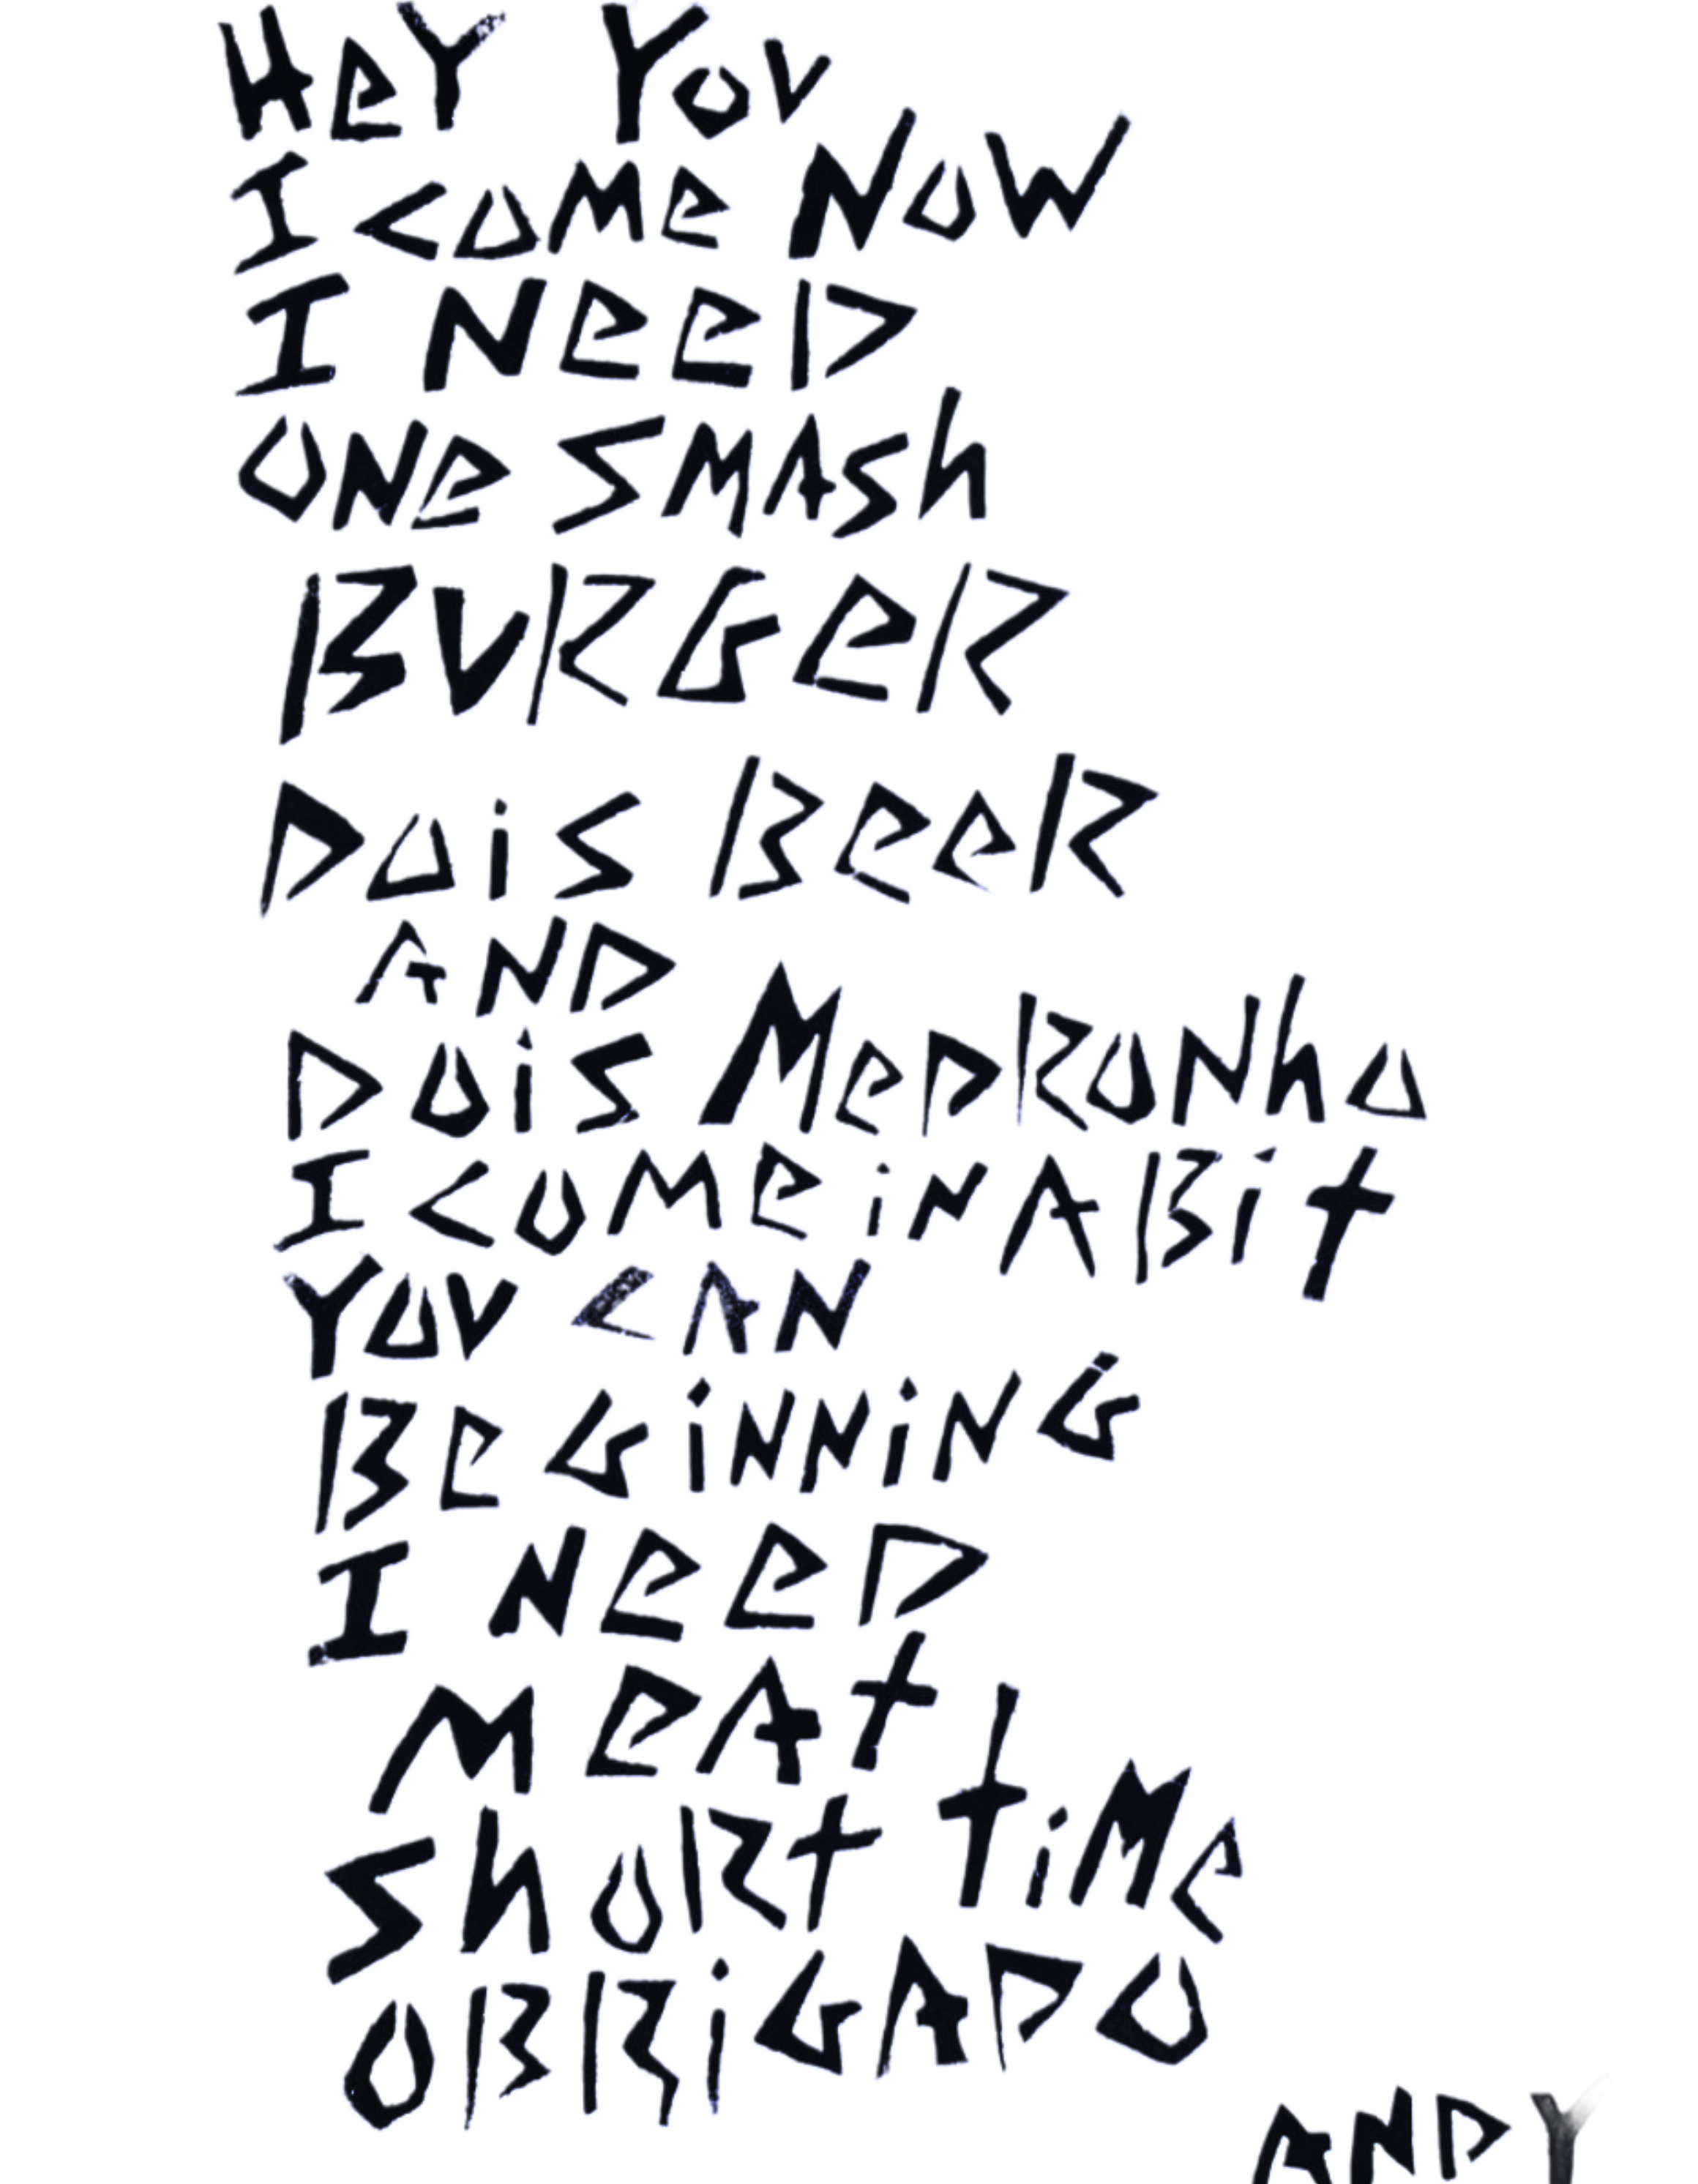 HeY YoV
I come Now
I NeeD
oNe SMASh
BURGeR
DoiS BeeR
AND
DoiS MeDRoNho
I come iN A Bit
YoV CAN
BeGiNNiNG
I NeeD
MeAt
ShoRt tiMe
oBRiGADo
ANDY